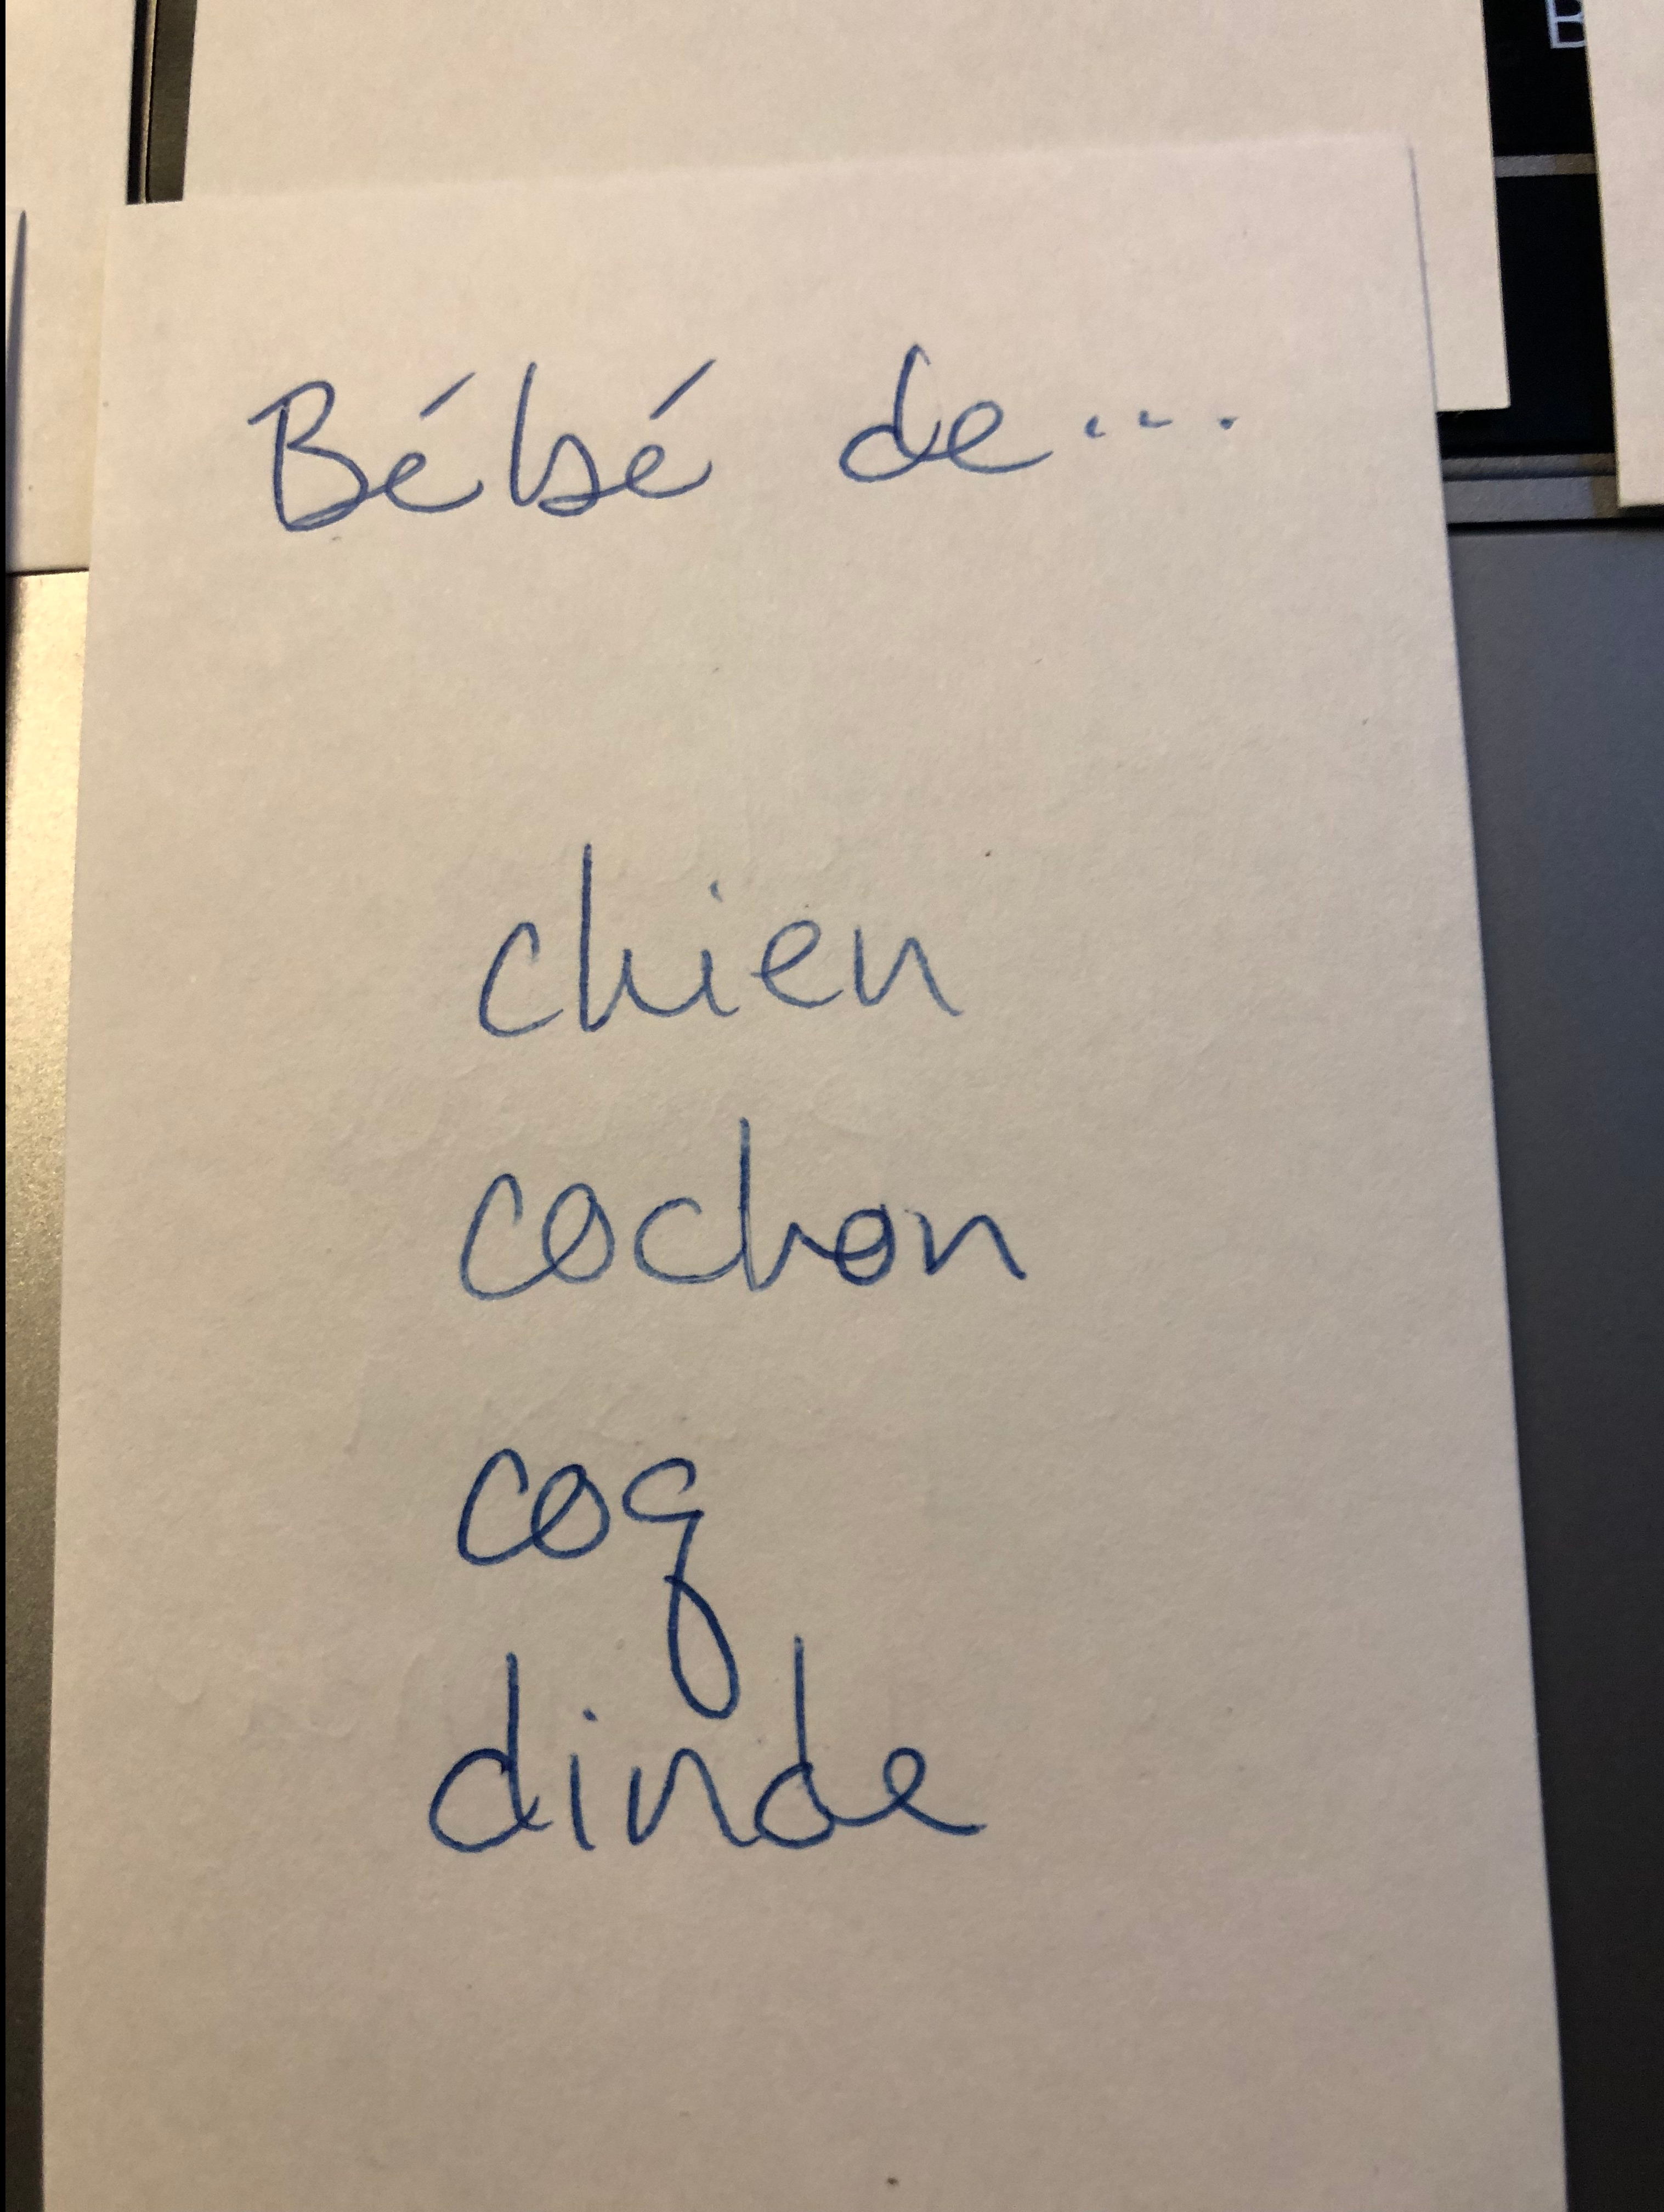 B
Bébé de...
chien
cochon
coq
dinde